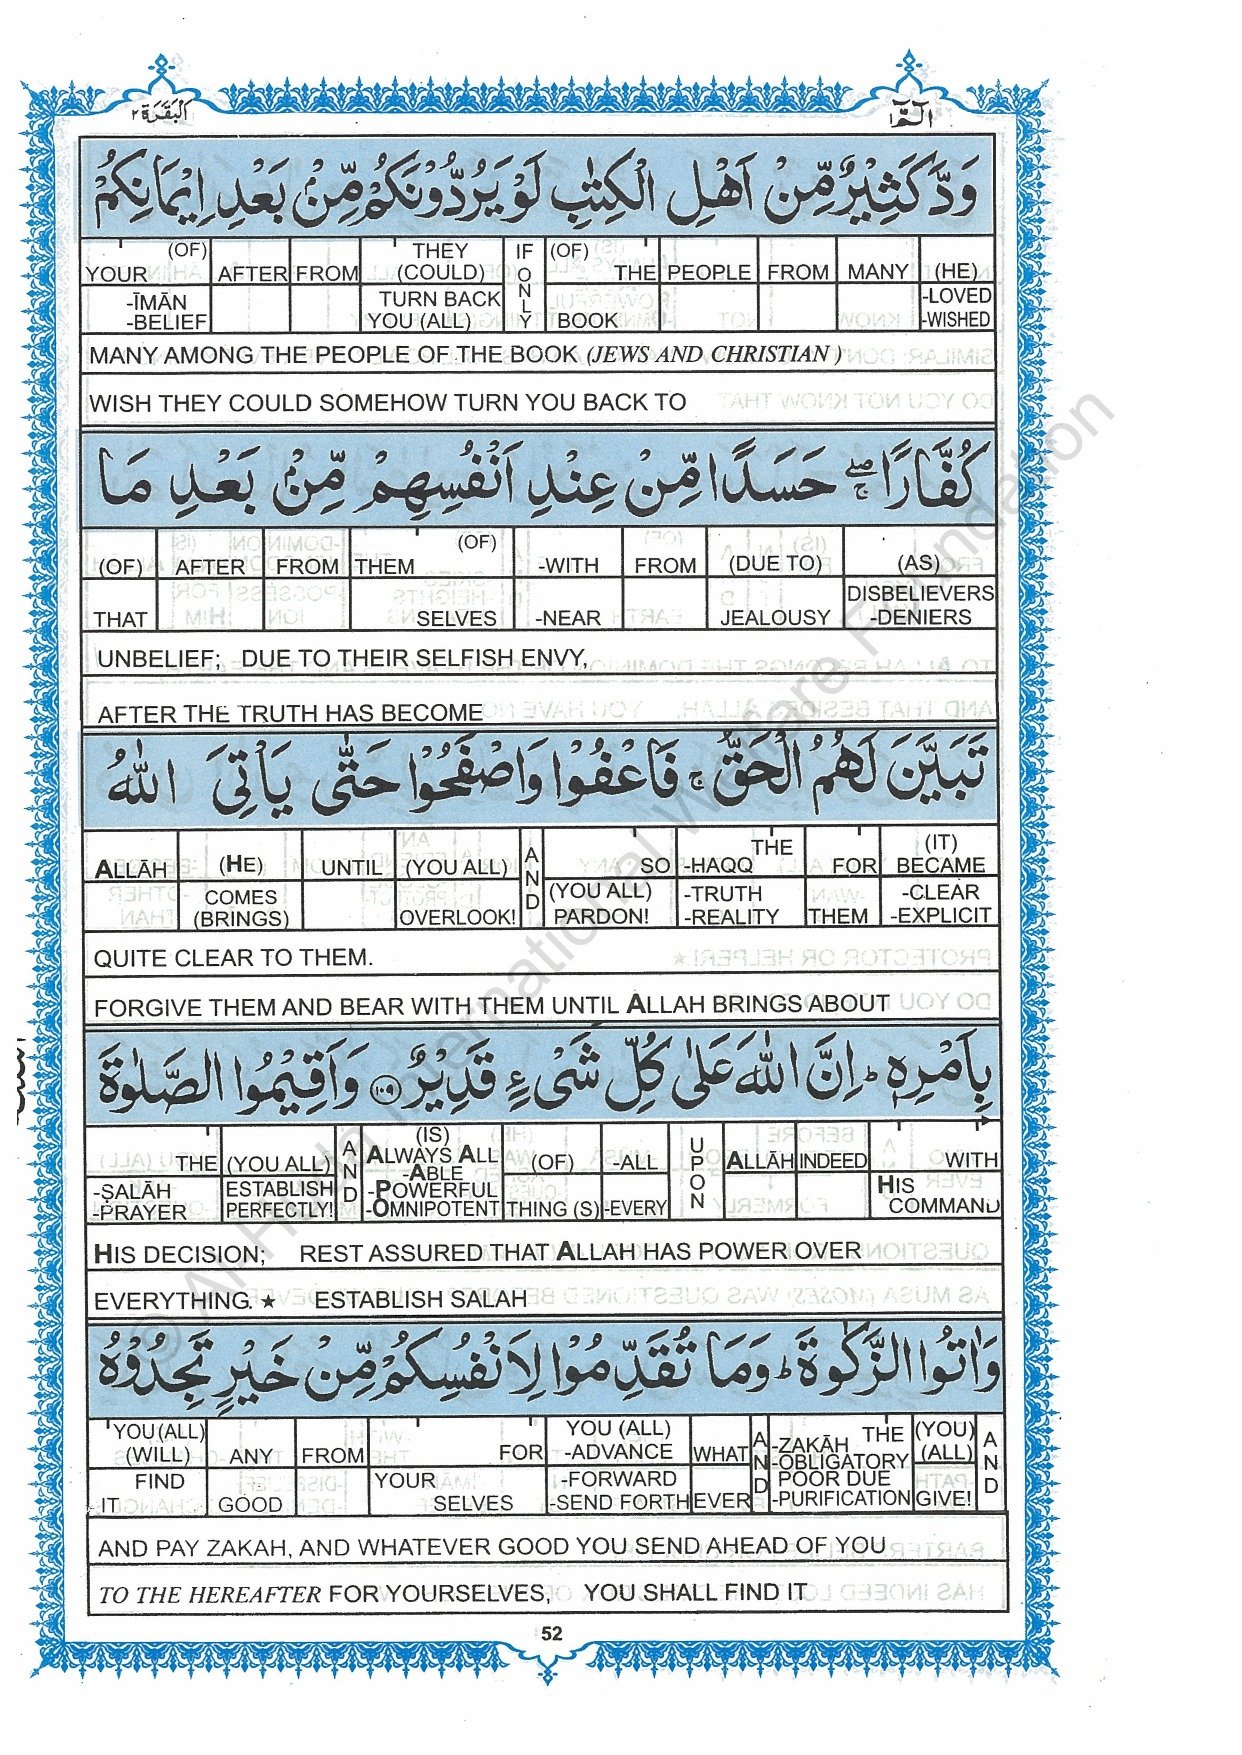 البقرة ٢
الٓمّٓ ١
وَدَّ كَثِيْرٌ مِّنْ اَهْلِ الْكِتٰبِ لَوْ يَرُدُّوْنَكُمْ مِّنْۢ بَعْدِ اِيْمَانِكُمْ
YOUR (OF) AFTER FROM THEY (COULD) IF ONLY (OF) THE PEOPLE FROM MANY (HE)
-ĪMĀN -BELIEF TURN BACK YOU (ALL) BOOK -LOVED -WISHED
MANY AMONG THE PEOPLE OF THE BOOK (JEWS AND CHRISTIAN )
WISH THEY COULD SOMEHOW TURN YOU BACK TO
كُفَّارًا ۖۚ حَسَدًا مِّنْ عِنْدِ اَنْفُسِهِمْ مِّنْۢ بَعْدِ مَا
(OF) AFTER FROM THEM (OF) -WITH FROM (DUE TO) (AS)
THAT SELVES -NEAR JEALOUSY DISBELIEVERS -DENIERS
UNBELIEF; DUE TO THEIR SELFISH ENVY,
AFTER THE TRUTH HAS BECOME
تَبَيَّنَ لَهُمُ الْحَقُّ ۚ فَاعْفُوْا وَاصْفَحُوْا حَتّٰى يَاْتِىَ اللّٰهُ
ALLĀH (HE) UNTIL (YOU ALL) AND SO -HAQQ THE FOR (IT) BECAME
COMES (BRINGS) OVERLOOK! (YOU ALL) PARDON! -TRUTH -REALITY THEM -CLEAR -EXPLICIT
QUITE CLEAR TO THEM.
FORGIVE THEM AND BEAR WITH THEM UNTIL ALLAH BRINGS ABOUT
بِاَمْرِهٖ ؕ اِنَّ اللّٰهَ عَلٰى كُلِّ شَىْءٍ قَدِيْرٌ ۝۱۰۹ وَاَقِيْمُوا الصَّلٰوةَ
THE (YOU ALL) AND (IS) ALWAYS ALL -ABLE (OF) -ALL UPON ALLĀH INDEED WITH
-ṢALĀH -PRAYER ESTABLISH PERFECTLY! -POWERFUL -OMNIPOTENT THING (S) -EVERY HIS COMMAND
HIS DECISION; REST ASSURED THAT ALLAH HAS POWER OVER
EVERYTHING. ★ ESTABLISH SALAH
وَاٰتُوا الزَّكٰوةَ ؕ وَمَا تُقَدِّمُوْا لِاَنْفُسِكُمْ مِّنْ خَيْرٍ تَجِدُوْهُ
YOU (ALL) (WILL) ANY FROM FOR YOU (ALL) -ADVANCE WHAT AND -ZAKĀH THE -OBLIGATORY (YOU) (ALL) AND
FIND -IT GOOD YOUR SELVES -FORWARD -SEND FORTH EVER POOR DUE -PURIFICATION GIVE!
AND PAY ZAKAH, AND WHATEVER GOOD YOU SEND AHEAD OF YOU
TO THE HEREAFTER FOR YOURSELVES, YOU SHALL FIND IT
52
© Al-Huda International Welfare Foundation